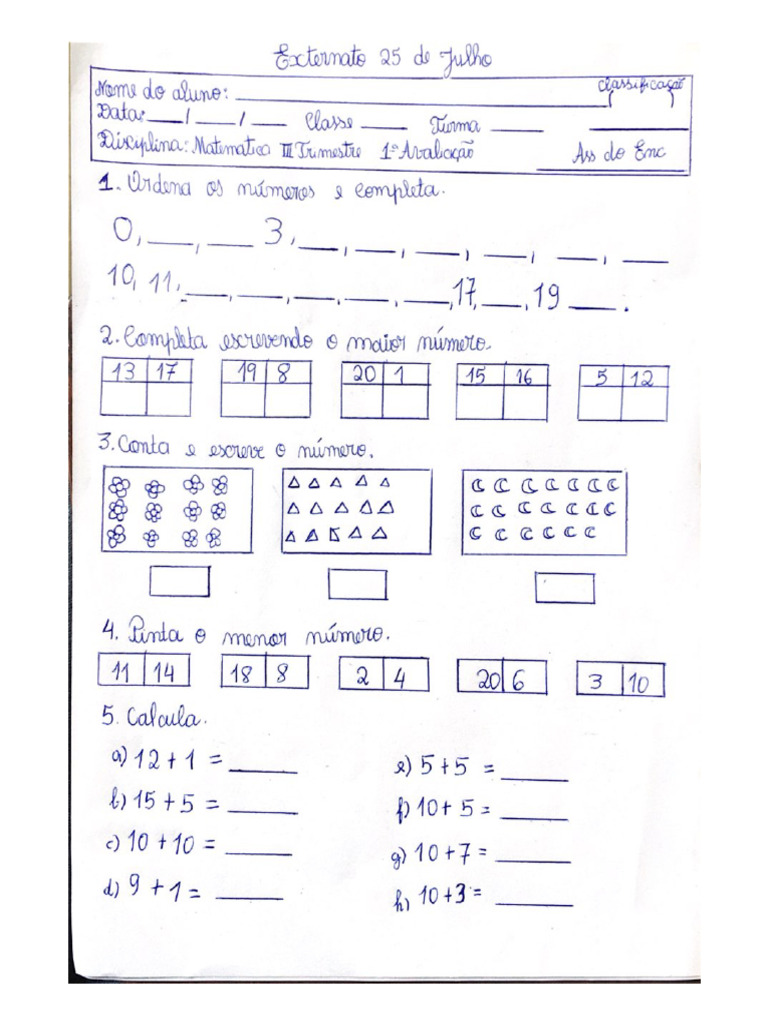 Externato 25 de Julho
Nome do aluno: ____________ Classificação
Data: ___/___/___ Classe ____ Turma ____ ________
Disciplina: Matematica III Trimestre 1ª Avaliação Ass do Enc
1. Ordena os números e completa.
0, ___, ___ 3, ___, ___, ___, ___, ___, ___
10, 11, ___, ___, ___, ___, ___, 17, ___, 19 ___.
2. Completa escrevendo o maior número.
13 17 19 8 20 1 15 16 5 12
3. Conta e escreve o número.
4. Pinta o menor número.
11 14 18 8 2 4 20 6 3 10
5. Calcula.
a) 12 + 1 = ______ e) 5 + 5 = ______
b) 15 + 5 = ______ f) 10 + 5 = ______
c) 10 + 10 = ______ g) 10 + 7 = ______
d) 9 + 1 = ______ h) 10 + 3 = ______